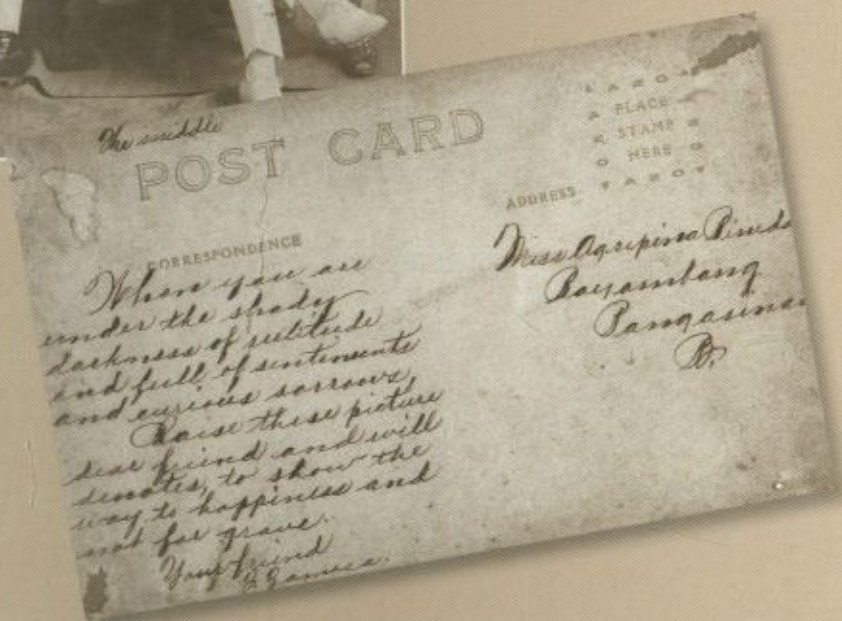 The middle
POST CARD
AZO
PLACE
STAMP
HERE
AZO
ADDRESS
CORRESPONDENCE
When you are
under the shady
darkness of solitude
and full of sentiments
and curious sorrows,
Raise these picture
dear friend and will
denotes, to show the
way to happiness and
not for grave.
Your friend
Miss Agripina Pineda
Bayambang
Pangasinan